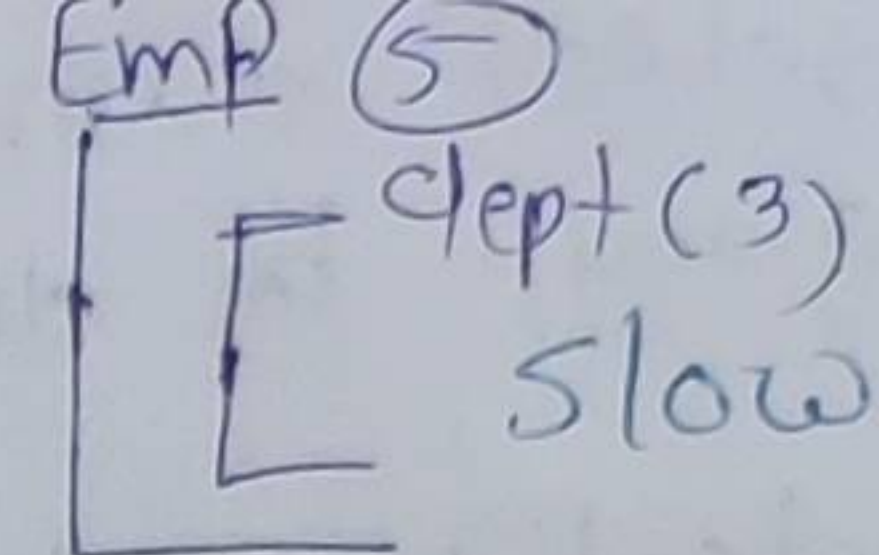 Emp 5
dept (3)
slow